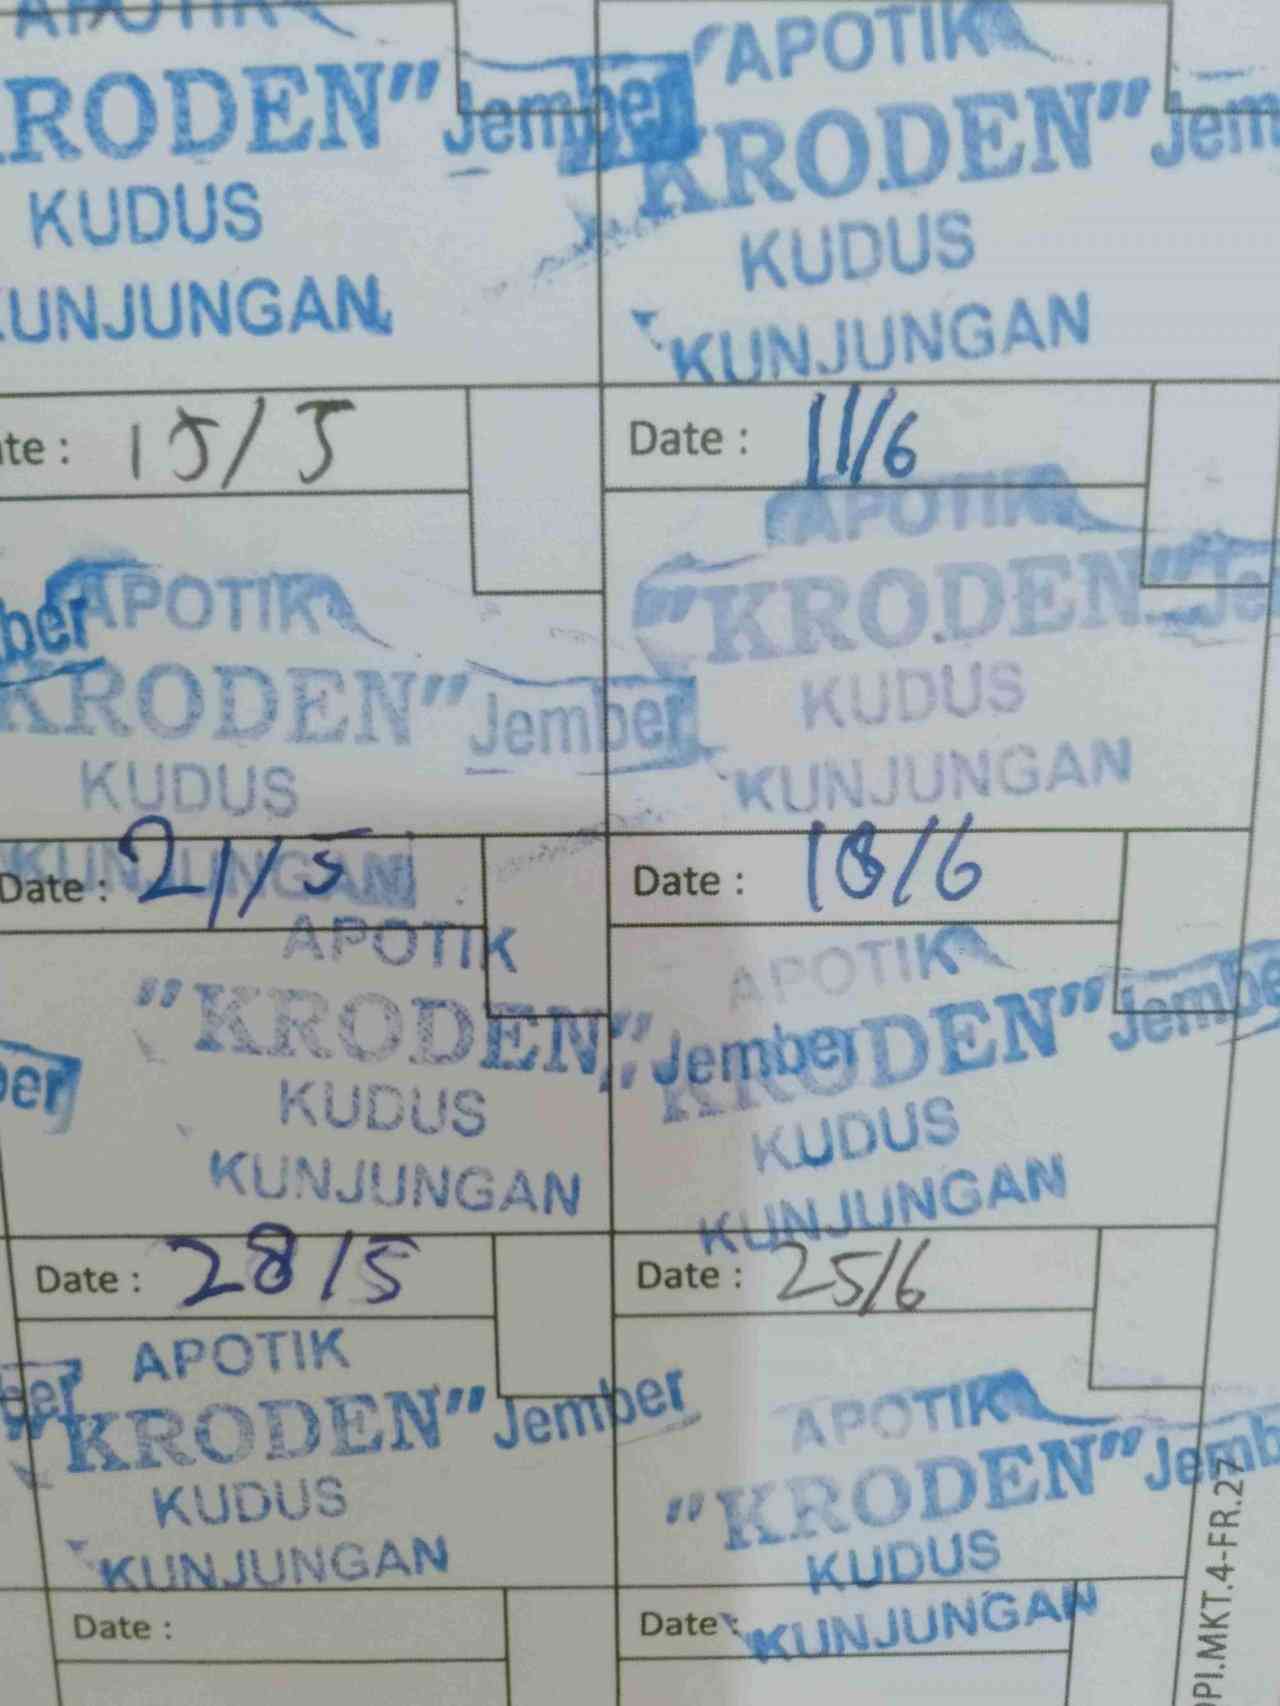 APOTIK
KRODEN" Jember
KUDUS
KUNJUNGAN
15/5
APOTIK
KRODEN" Jember
KUDUS
KUNJUNGAN
Date : 21/5
APOTIK
"KRODEN", Jember
KUDUS
KUNJUNGAN
Date : 28/5
APOTIK
KRODEN" Jember
KUDUS
KUNJUNGAN
Date :
"APOTIK
KRODEN" Jem
KUDUS
KUNJUNGAN
Date : 11/6
APOTIK
"KRODEN" Je
KUDUS
KUNJUNGAN
Date : 18/6
APOTIK
KRODEN" Jember
KUDUS
KUNJUNGAN
Date : 25/6
APOTIK
"KRODEN" Jemb
KUDUS
KUNJUNGAN
Date :
PI.MKT.4-FR.27
ber
ber
ber